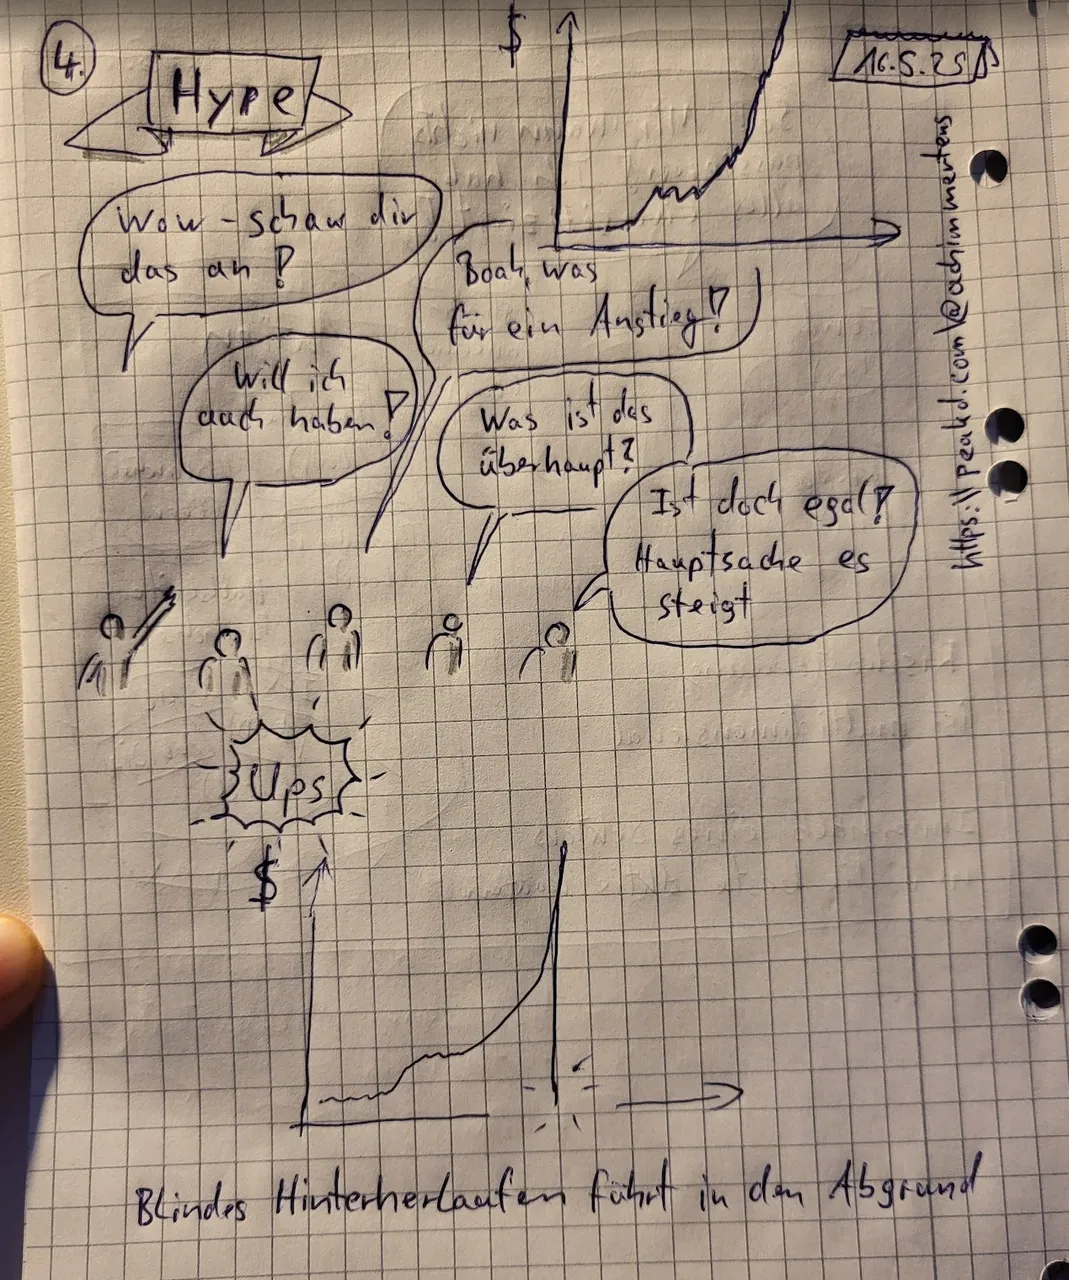 4.
Hype
$
16.5.25
Wow - schau dir
das an!
Boah, was
für ein Anstieg!
Will ich
auch haben!
Was ist das
überhaupt?
Ist doch egal!
Hauptsache es
steigt
https://peakd.com/@achimmertens
Ups
$
Blindes Hinterherlaufen führt in den Abgrund